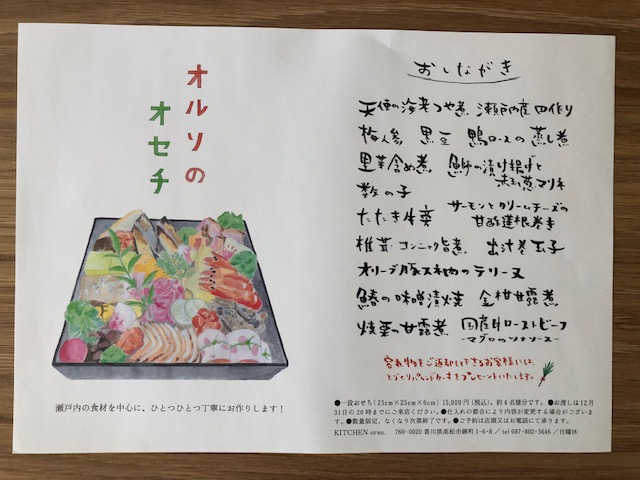 オルソの
オセチ
瀬戸内の食材を中心に、ひとつひとつ丁寧にお作りします！
おしながき
天使の海老つや煮 瀬戸内産田作り
梅人参 黒豆 鴨ロースの蒸し煮
里芋含め煮 鰤の漬け揚げと
赤玉葱マリネ
数の子
たたき牛蒡 サーモンとクリームチーズの
甘酢蓮根巻き
椎茸・コンニャク旨煮 出汁巻玉子
オリーブ豚スネ肉のテリーヌ
鰆の味噌漬焼 金柑甘露煮
焼栗の甘露煮 国産牛ローストビーフ
-マグロのツナソース-
容れ物をご返却してできるお客様には、
てづくりパウンドケーキをプレゼントいたします。
●一段おせち(25cm×25cm×6cm) 15,000円(税込)。約4名様分です。 ●お渡しは12月
31日の20時までにご来店ください。●仕入れの都合により内容が変更する場合がございま
す。●数量限定、なくなり次第終了です。●ご予約は店頭又はお電話にて承ります。
KITCHEN orso. 760-0020 香川県高松市錦町1-6-8／tel 087-802-5646／日曜休